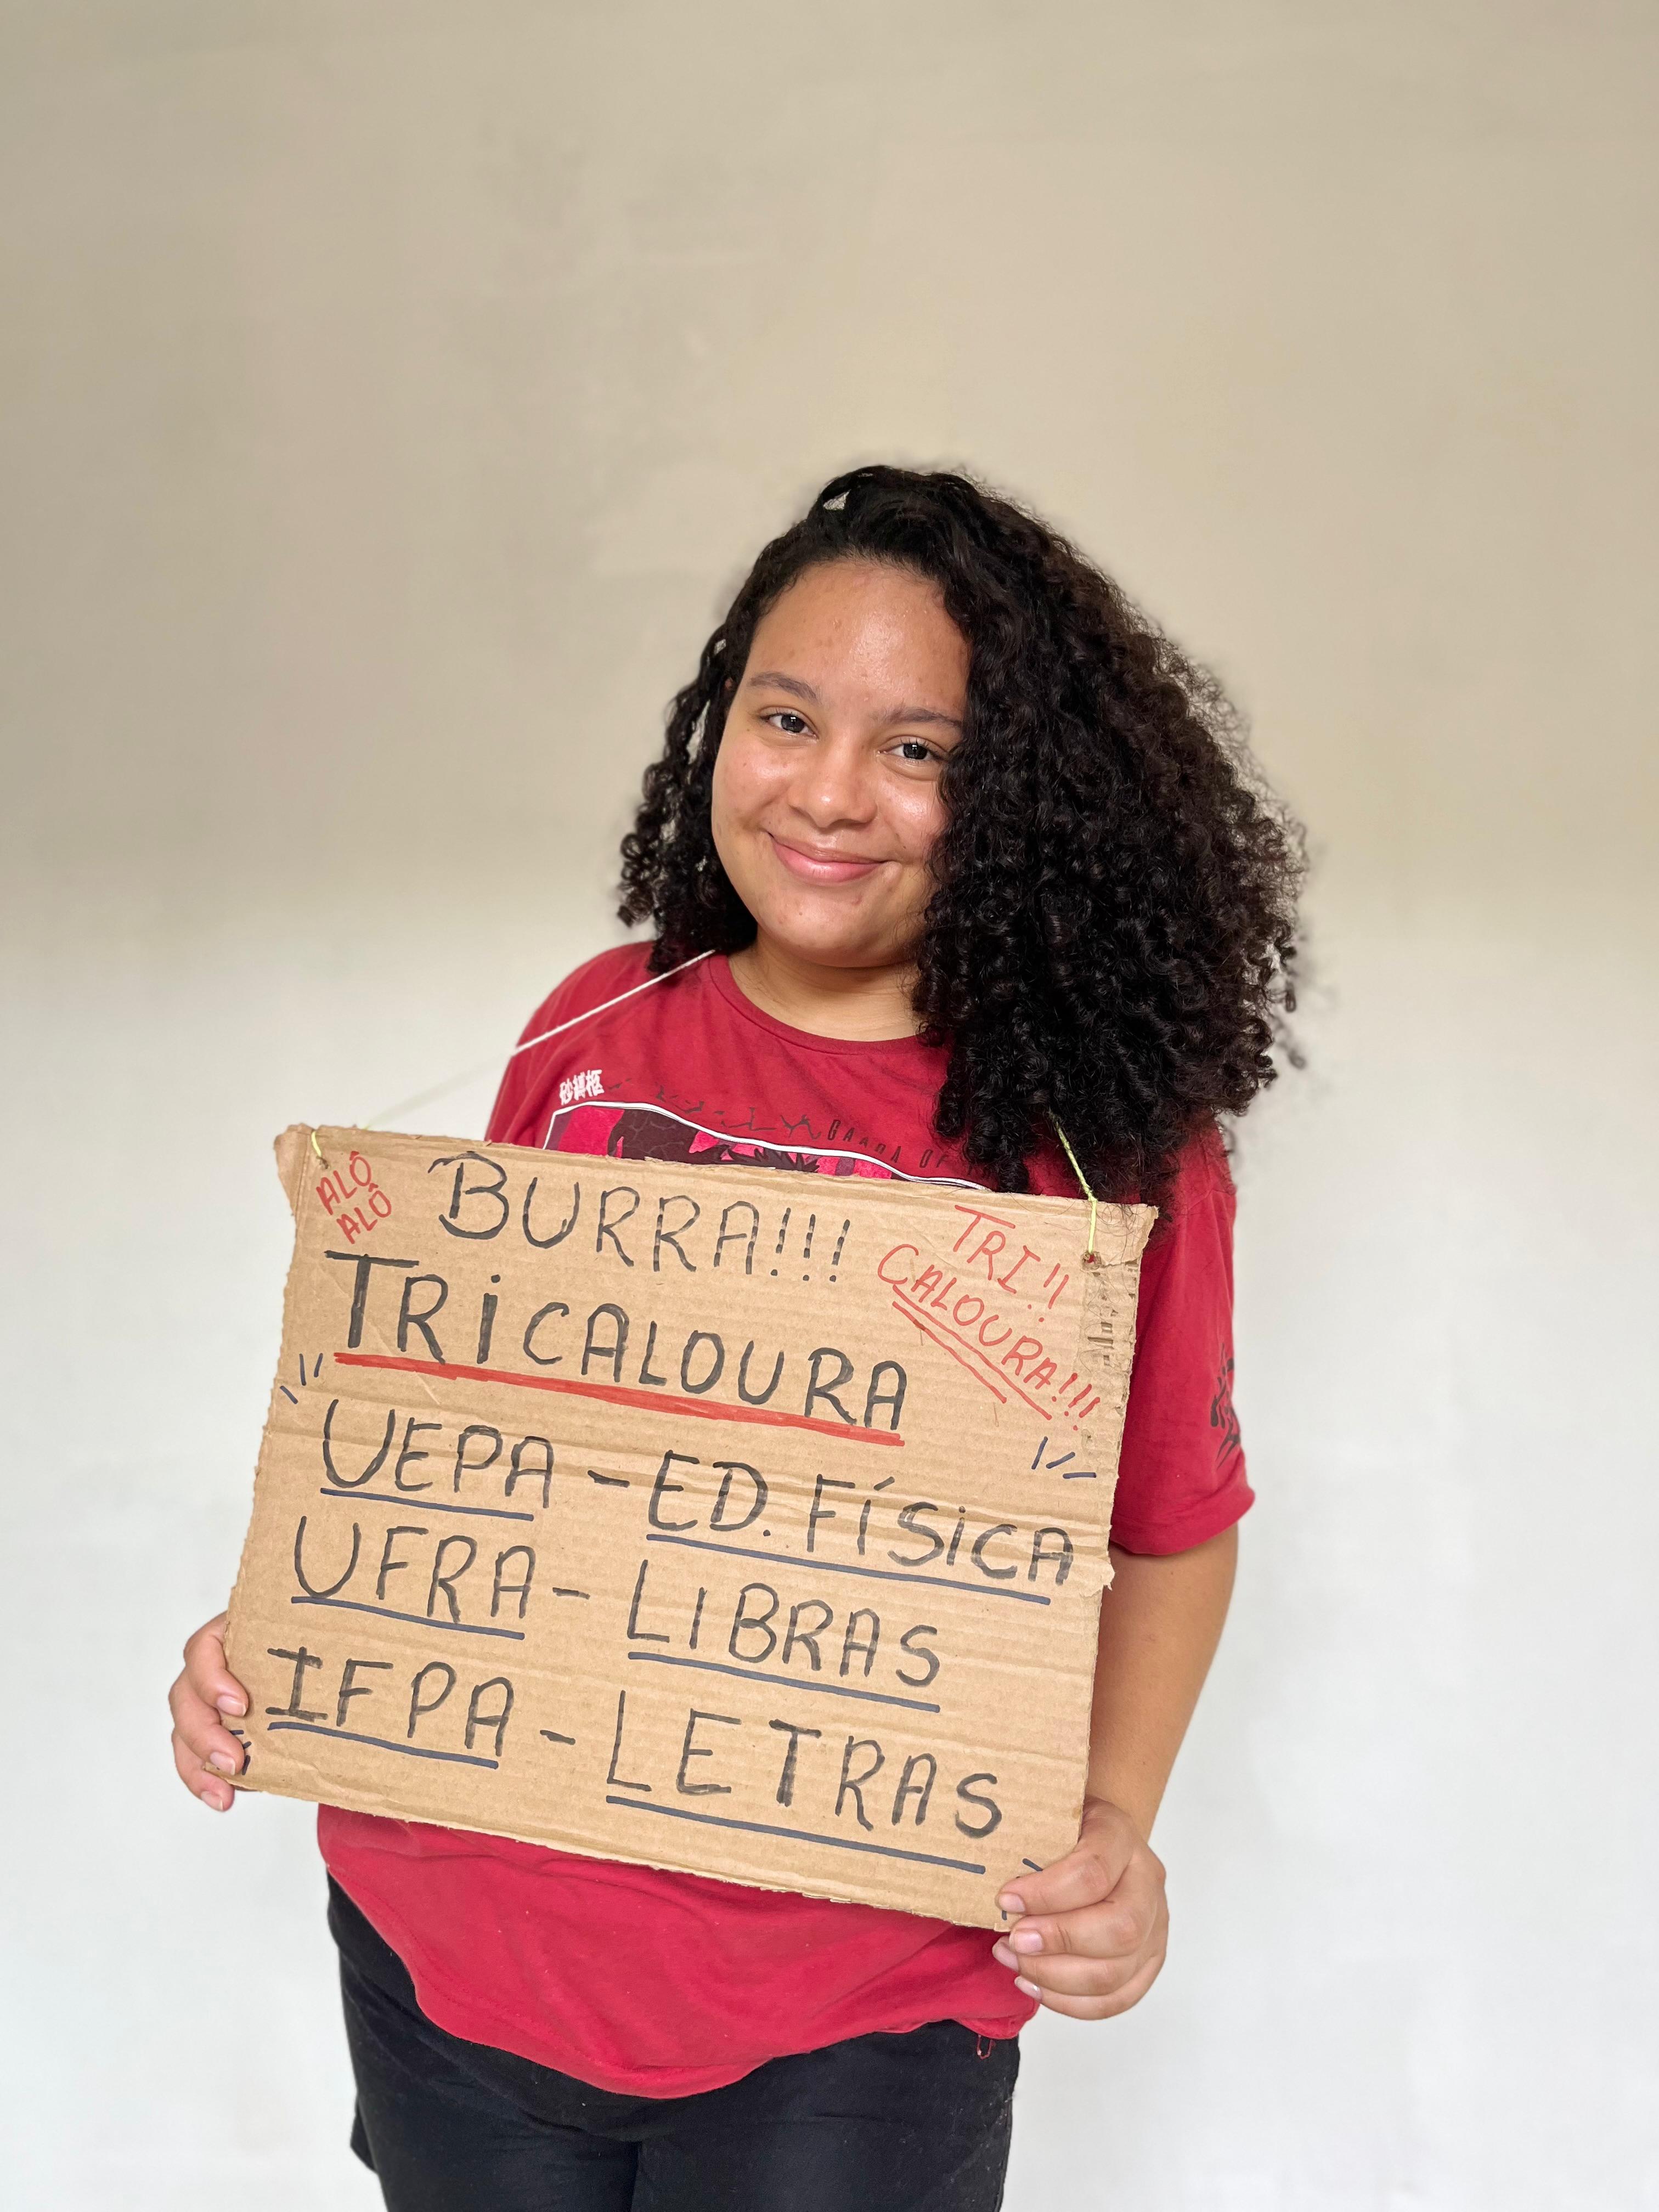 砂縛柩
GAARA OF
ALÔ
ALÔ
BURRA!!!
TRI!!
CALOURA!!!
TRiCALOURA
UEPA - ED. FÍSiCA
UFRA - LIBRAS
IFPA - LETRAS